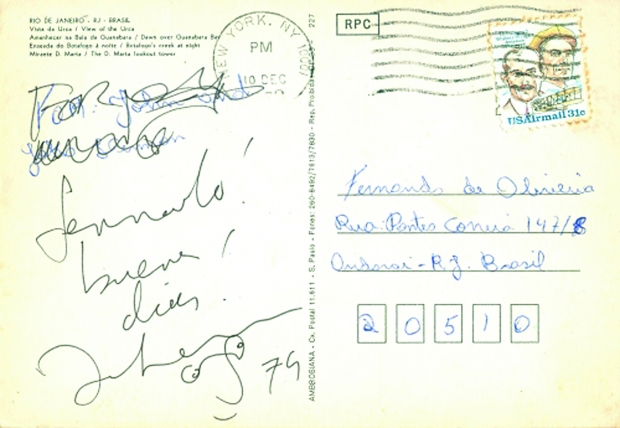 RIO DE JANEIRO - RJ - BRASIL
Vista da Urca / View of the Urca
Amanhecer na Baía de Guanabara / Dawn over Guanabara Bay
Enseada de Botafogo à noite / Botafogo's creek at night
Mirante D. Marta / The D. Marta lookout tower
buenos
dias!
79
AMBROSIANA - Cx. Postal 11.611 - S. Paulo - Fones: 260-8492/7613/7830 - Rep. Proibida
227
NEW YORK, NY
PM
10 DEC
RPC
USAirmail 31c
Fernando de Oliveira
Rua Pontes Correia 147/8
Andaraí - R.J. Brasil
2 0 5 1 0